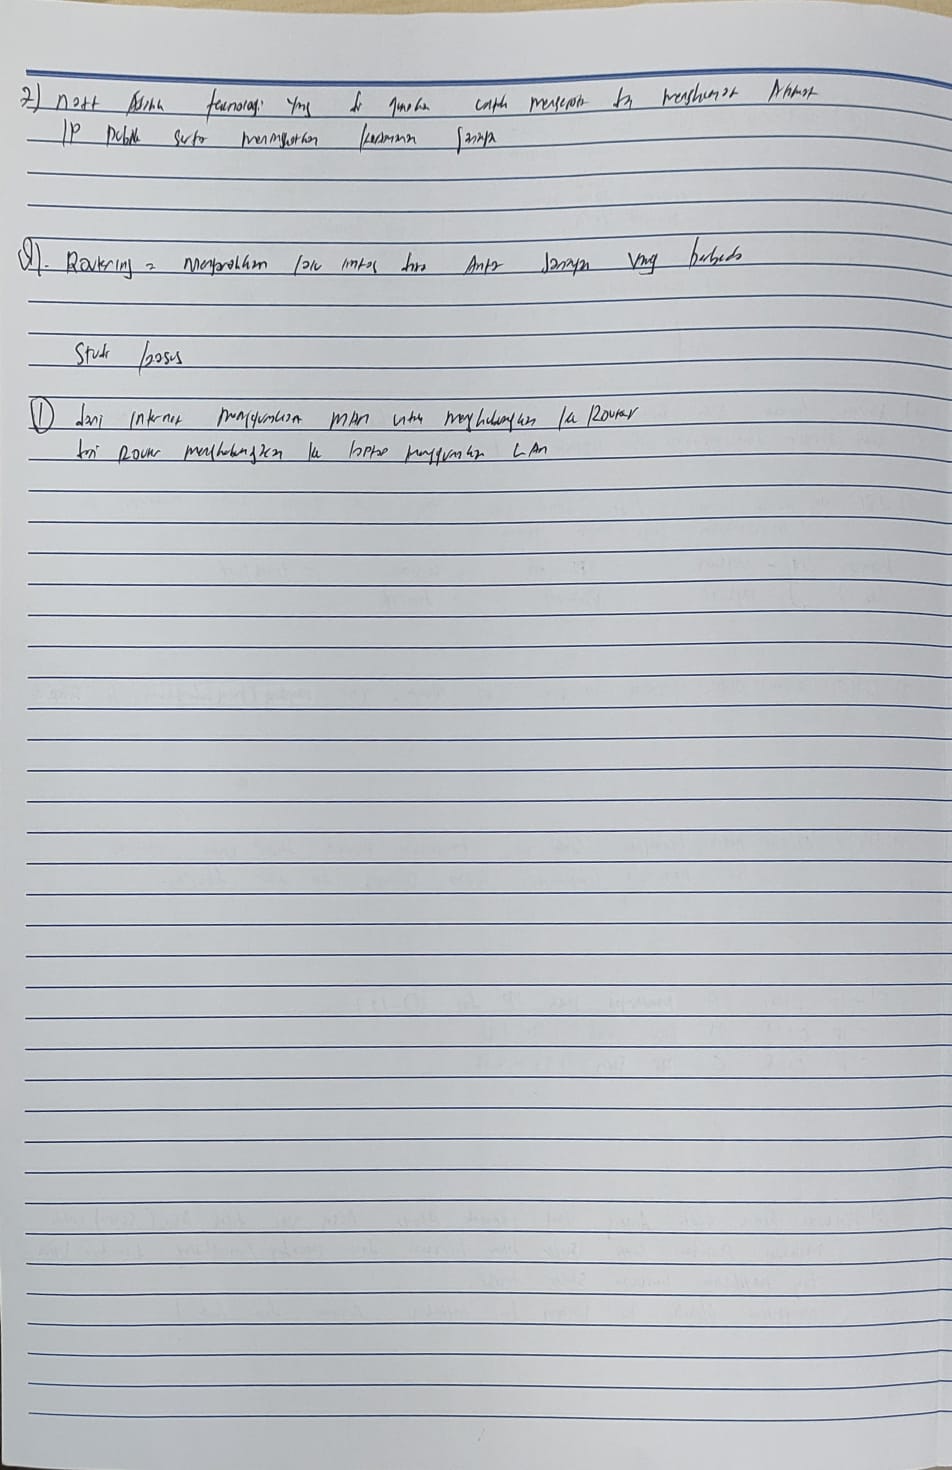 7) natt adalah teknologi yng di gunakan untuk mengelola dan menghemat Alamat
IP Publik serta meningkatkan keamanan Jaringan
8). Routering = Memproblham lalu lintas data Antar Jaringan yang berbeda
Studi kasus
① dari internet menggunakan MAN untuk menghubungkan ke Router
dari Router menghubungkan ke laptop menggunakan LAN